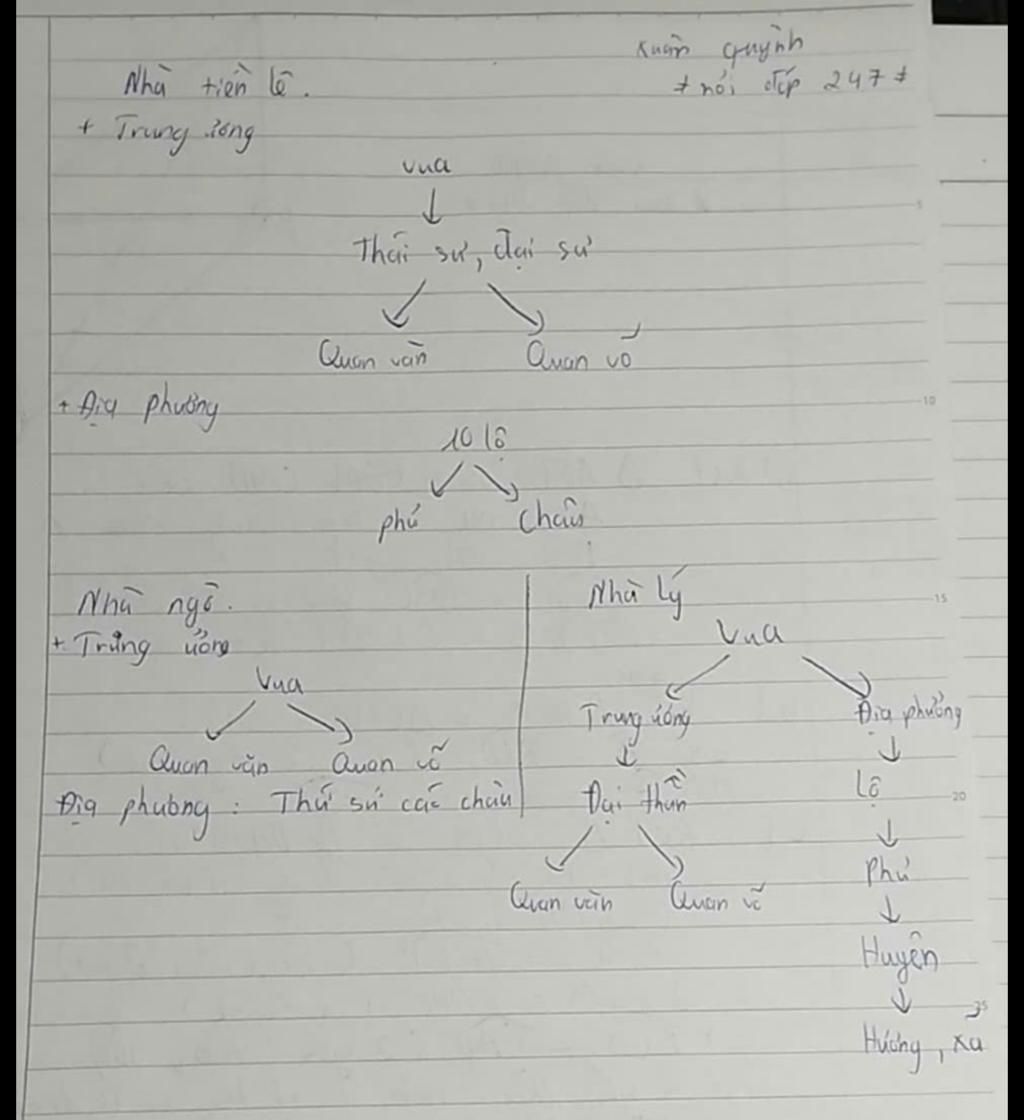 Xuân Quỳnh
Nhà tiền lê.
≠ nói đíp 247 ≠
+ Trung ương
Vua
Thái sư, đại sư
Quan văn Quan võ
+ Địa phương
10 lộ
phủ Châu
Nhà ngô.
+ Trung ương
Vua
Quan văn Quan võ
Địa phương: Thứ sử các châu
Nhà Lý
Vua
Trung ương Địa phương
Đại thần Lộ
Quan văn Quan võ
Phủ
Huyện
Hương, xã
5
10
15
20
25